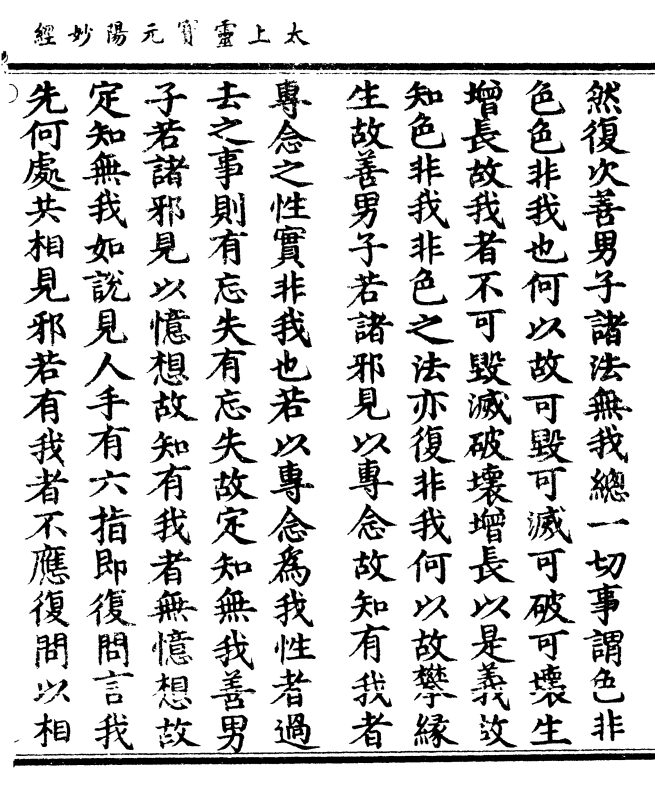 太上靈寳元陽妙經
然復次善男子諸法無我總一切事謂色非
色色非我也何以故可毀可滅可破可壞生
增長故我者不可毀滅破壞增長以是義故
知色非我非色之法亦復非我何以故攀緣
生故善男子若諸邪見以專念故知有我者
專念之性實非我也若以專念為我性者過
去之事則有忘失有忘失故定知無我善男
子若諸邪見以憶想故知有我者無憶想故
定知無我如說見人手有六指即復問言我
先何處共相見邪若有我者不應復問以相